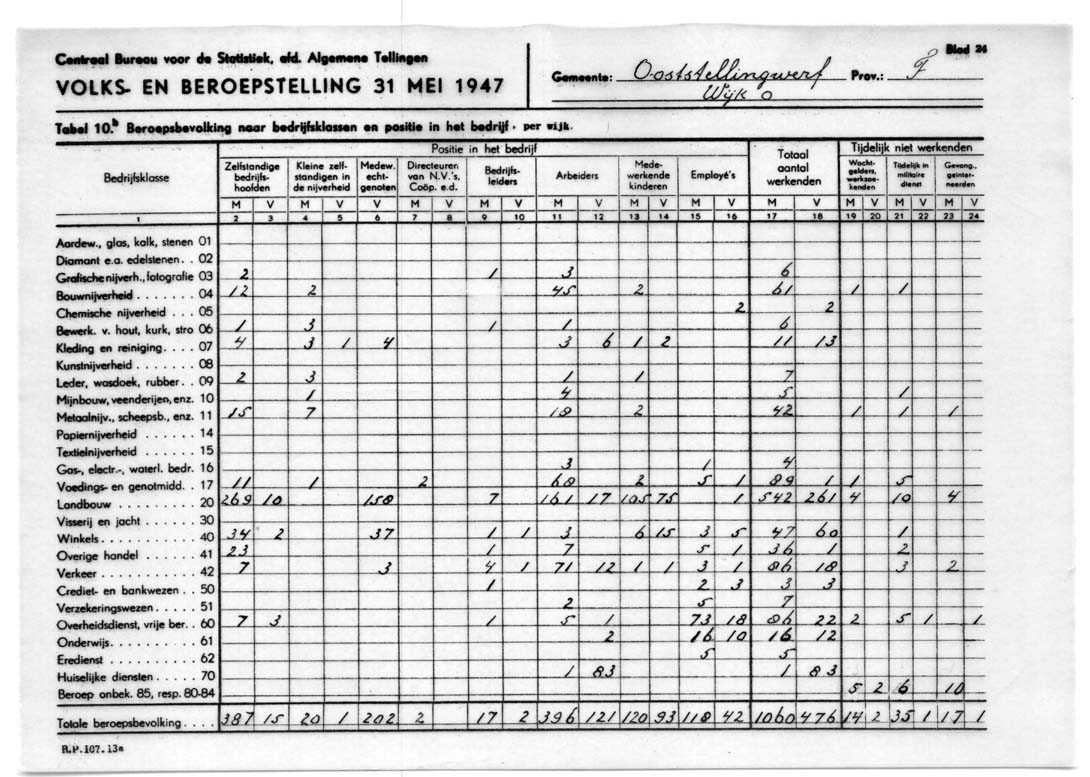 Centraal Bureau voor de Statistiek, afd. Algemene Tellingen
VOLKS- EN BEROEPSTELLING 31 MEI 1947
Blad 24
Gemeente: Ooststellingwerf Prov.: F
Wijk O
Tabel 10.b Beroepsbevolking naar bedrijfsklassen en positie in het bedrijf, per wijk.
Bedrijfsklasse
Positie in het bedrijf
Zelfstandige bedrijfs-hoofden
Kleine zelf-standigen in de nijverheid
Medew. echt-genoten
Directeuren van N.V.'s, Coöp. e.d.
Bedrijfs-leiders
Arbeiders
Mede-werkende kinderen
Employé's
Totaal aantal werkenden
Tijdelijk niet werkenden
Wacht-gelders, werkzoe-kenden
Tijdelijk in militaire dienst
Gevang., geinter-neerden
M V M V V M V M V M V M V M V M V M V M V M V
1 2 3 4 5 6 7 8 9 10 11 12 13 14 15 16 17 18 19 20 21 22 23 24
Aardew., glas, kalk, stenen 01
Diamant e.a. edelstenen . . 02
Grafische nijverh., fotografie 03 2 1 3 6
Bouwnijverheid . . . . . . . 04 12 2 45 2 61 1 1
Chemische nijverheid . . . 05 2 2
Bewerk. v. hout, kurk, stro 06 1 3 1 1 6
Kleding en reiniging. . . . 07 4 3 1 4 3 6 1 2 11 13
Kunstnijverheid . . . . . . 08
Leder, wasdoek, rubber . . 09 2 3 1 1 7
Mijnbouw, veenderijen, enz. 10 1 4 5 1
Metaalnijv., scheepsb., enz. 11 15 7 18 2 42 1 1 1
Papiernijverheid . . . . . . 14
Textielnijverheid . . . . . . 15
Gas-, electr.-, waterl. bedr. 16 3 1 4
Voedings- en genotmidd. . . 17 11 1 2 68 2 5 1 89 1 5
Landbouw . . . . . . . . . 20 269 10 158 7 161 17 105 75 1 542 261 4 10 4
Visserij en jacht . . . . . . 30
Winkels. . . . . . . . . . . 40 34 2 37 1 1 3 6 15 3 5 47 60 1
Overige handel . . . . . . 41 23 1 7 5 1 36 1 2
Verkeer . . . . . . . . . . 42 7 3 4 1 71 12 1 1 3 1 86 18 3 2
Crediet- en bankwezen . . 50 1 2 3 3 3
Verzekeringswezen. . . . . 51 2 5 7
Overheidsdienst, vrije ber. . 60 7 3 1 5 1 73 18 86 22 2 5 1 1
Onderwijs. . . . . . . . . . 61 2 16 10 16 12
Eredienst . . . . . . . . . 62 5 5
Huiselijke diensten . . . . . 70 1 83 1 83
Beroep onbek. 85, resp. 80-84 5 2 6 10
Totale beroepsbevolking . . . . 387 15 20 1 202 2 17 2 396 121 120 93 118 42 1060 476 14 2 35 1 17 1
R.P. 107. 13a